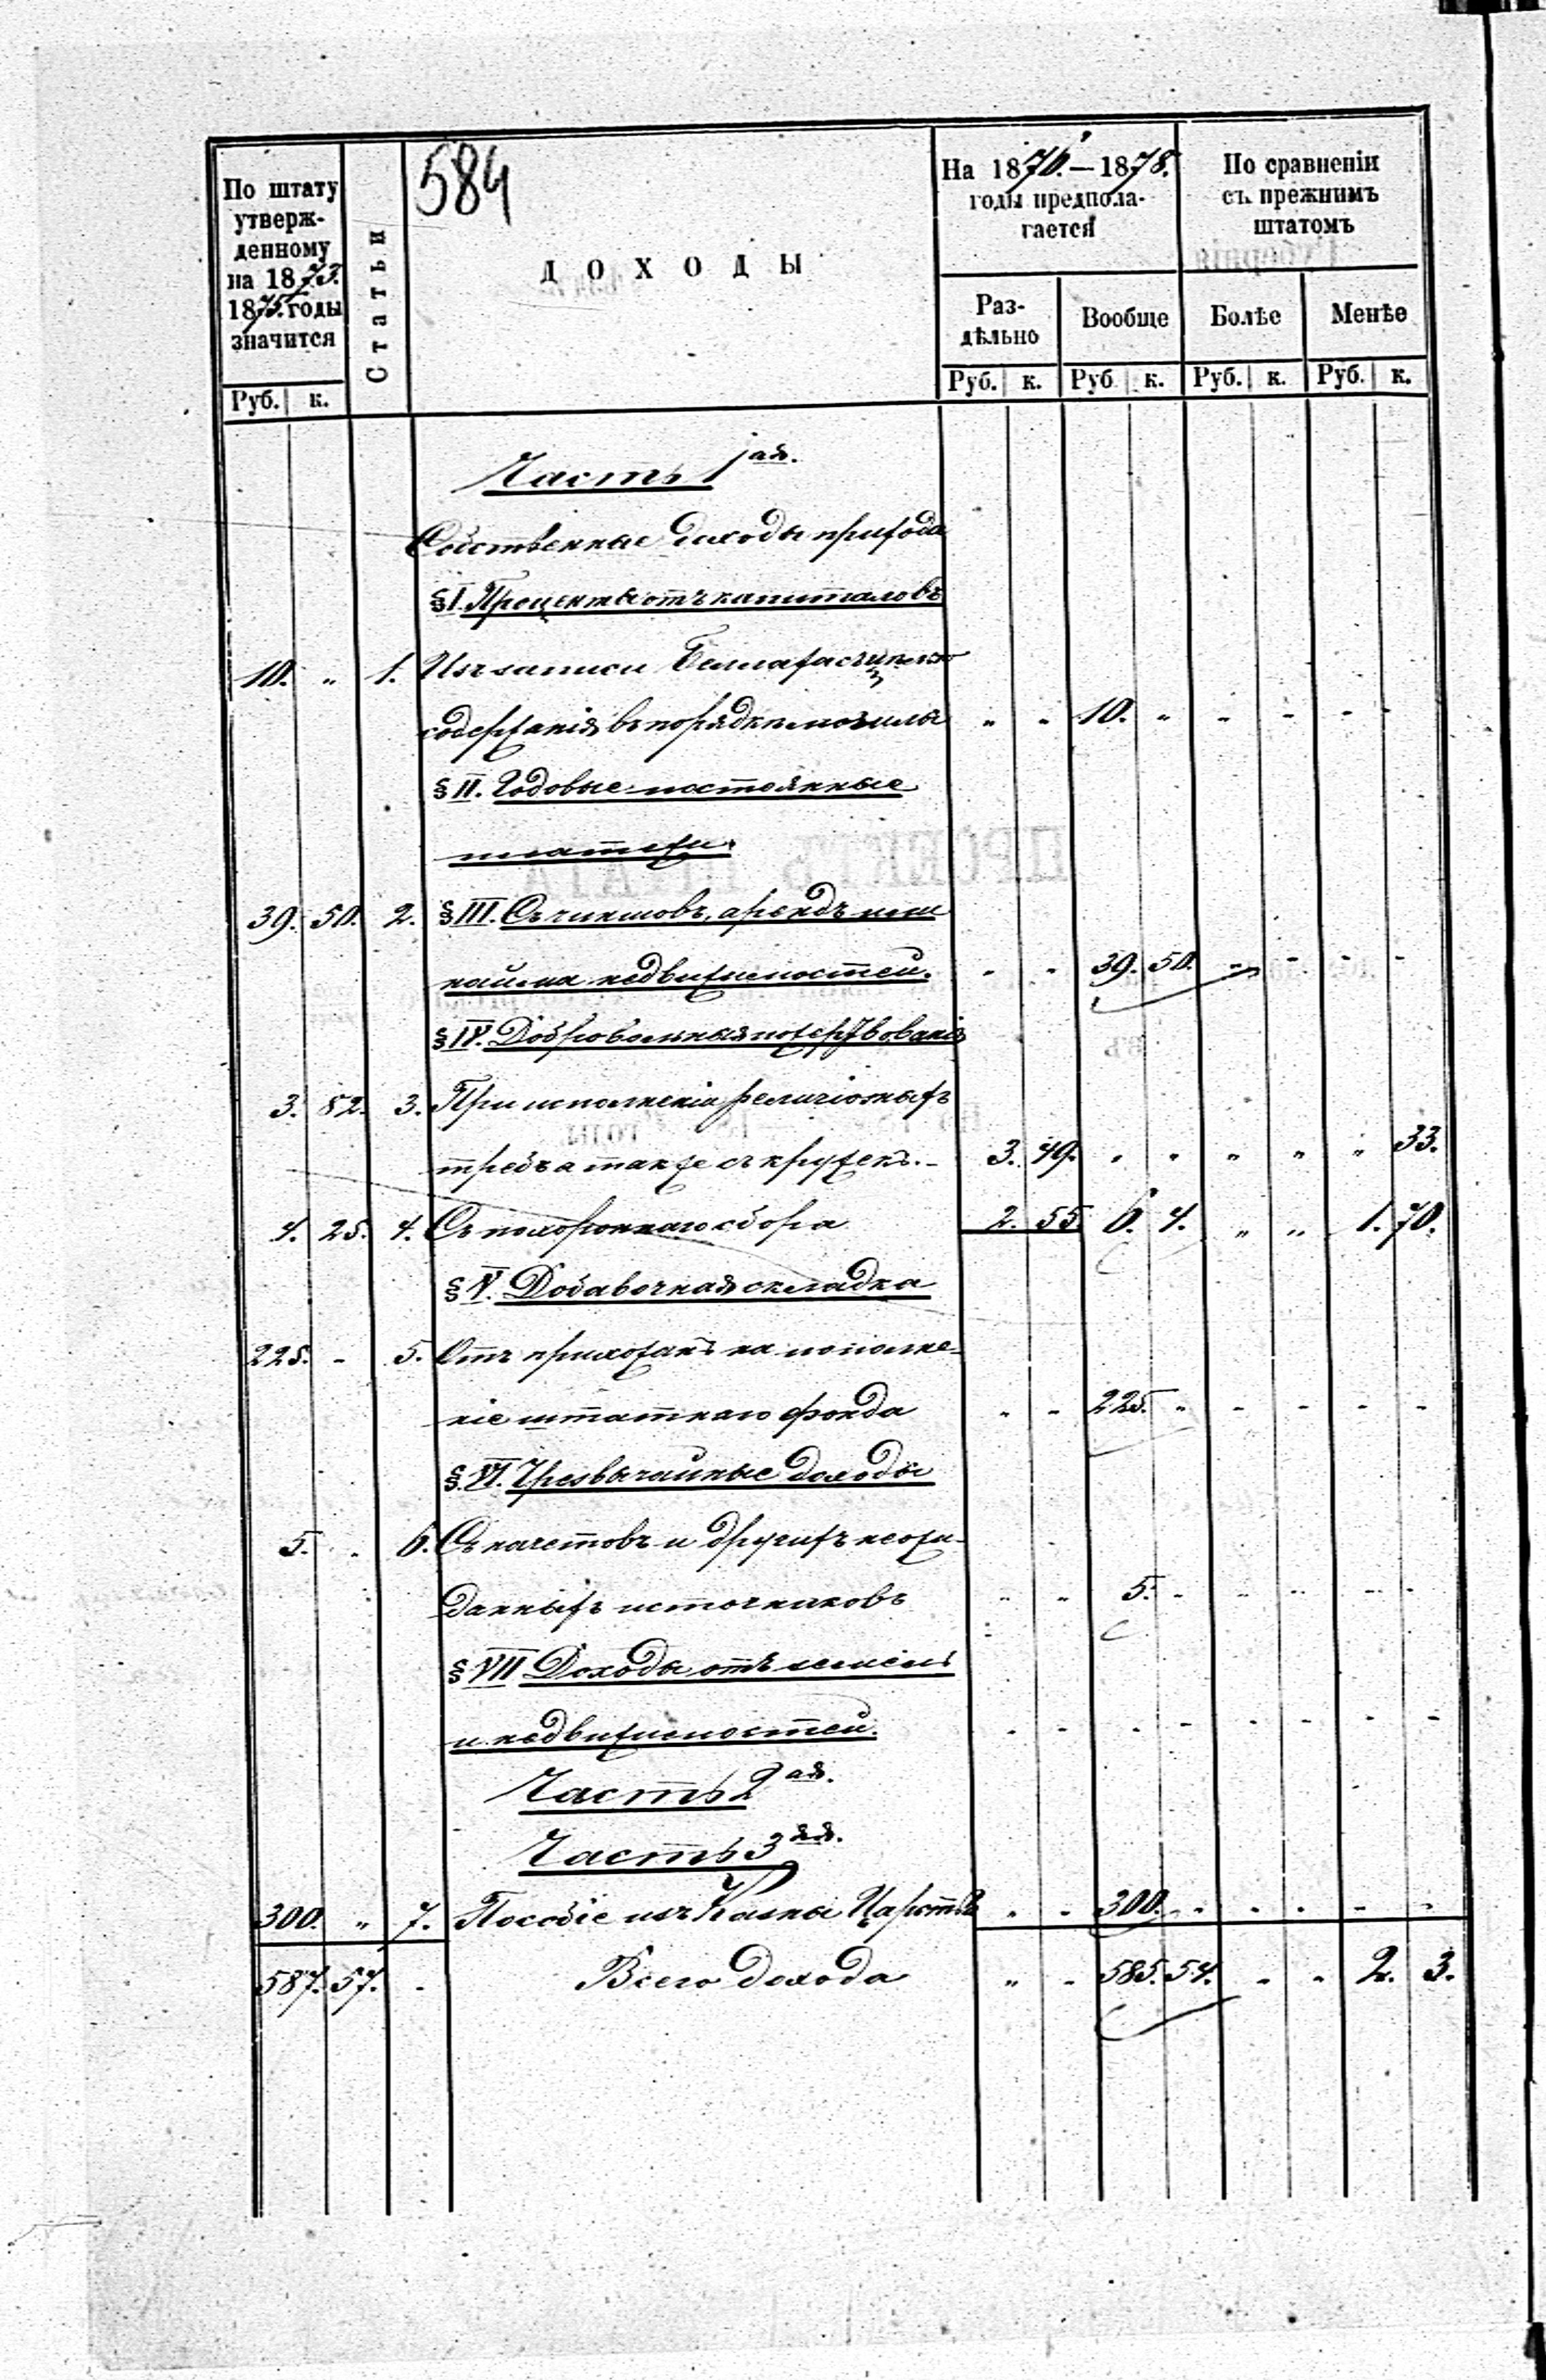 584
По штату утверж-денному на 1873. 1875. годы значится
Статьи
ДОХОДЫ
На 1876.—1878. годы предпола-гается
По сравненiи съ прежнимъ штатомъ
Раз-дѣльно Вообще Болѣе Менѣе
Руб. к. Руб. к. Руб. к. Руб. к. Руб. к.
Часть 1ая.
Собственные доходы прихода
§ I. Проценты отъ капиталовъ
10. „ 1. Изъ записи на
содержанiя въ порядкѣ могилы „ „ 10. „ „ - - -
§ II. Годовые постоянные
платежи.
39. 50. 2. § III. Съ чиншовъ, арендъ или
найма недвижимостей. - - 39. 50. - - - -
§ IV. Добровольныя пожертвованiя
3. 82. 3. При исполненiи религiозныхъ
требъ а также съ кружекъ. - 3. 49. „ „ „ „ „ 33.
4. 25. 4. Съ похороннаго сбора 2. 55 6. 4. „ „ 1. 70.
§ V. Добавочная складка
225. - 5. Отъ прихожанъ на пополне-
нiе штатнаго фонда „ - 225. „ - - - -
§. VI. Чрезвычайные доходы
5. . 6. Съ начетовъ и другихъ неожи-
данныхъ источниковъ „ „ 5. - - - - -
§ VII Доходы отъ земель
и недвижимостей. - - - - - - - -
Часть 2ая.
Часть 3яя.
300. „ 7. Пособiе изъ Казны Царства „ - 300. - - - - -
587. 57. - Всего дохода „ - 585. 54. - - 2. 3.